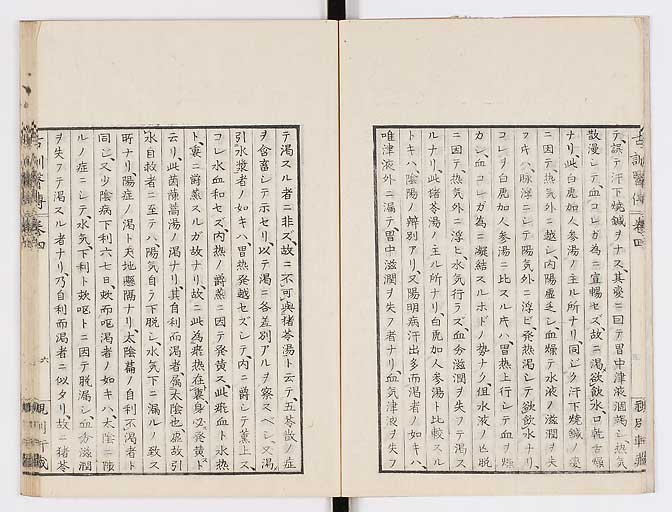 古訓醫傳 卷四
テ誤テ汗下燒鍼ヲナス、其變ニ因テ胃中津液涸竭シ、熱気
散漫シテ血コレガ為ニ宣暢セズ、故ニ渇欲飲水口乾舌燥
ナリ、此白虎加人参湯ノ主ル所ナリ、同ジク汗下燒鍼ノ變
ニ因テ熱気外ニ越シ、内陽虚乏シ血燥テ水液ノ滋潤ヲ失
フ其ハ脉浮ニシテ陽気外ニ浮ビ、発熱渇シテ欲飲水ナリ、
コレヲ白虎加人参湯ニ比スルキハ胃熱上行シテ血ヲ燥
カシ、血コレガ為ニ凝結スルホドノ勢ナク、但水液ノ
ニ因テ、熱気外ニ浮ヒ、水気行ラズ、血分滋潤ヲ失フテ渇ス
ルナリ、此猪苓湯ノ主ル所ナリ、白虎加人参湯ト比較スル
トキハ、陰陽ノ辨別アリ、又陽明病汗出多而渇者ノ如キハ、
唯津液外ニ漏テ、胃中滋潤ヲ失フ者ナリ、血気津液ヲ失フ
テ渇スル者ニ非ズ、故ニ不可與猪苓湯ト云テ、五苓散ノ症
ヲ含畜シテ示セリ、以テ渇ニ各差別アルヲ察スベシ、又渇
引水漿者ノ如キハ、胃熱発越セズシテ、内ニ爵シテ薫上ス、
コレ水血和セズ、内熱ノ爵蒸ニ因テ発黄ス、此瘀血ト水熱
ト、裏ニ爵蒸スルガ故ナリ、故ニ此為瘀熱在裏身必発黄ト
云リ、此茵蔯蒿湯ノ渇ナリ、其自利而渇者属太陰也、虚故引
水自救者ニ至テハ、陽気自ラ下脱シ、水気下ニ漏ルノ致ス
所ナリ、陽症ノ渇ト天地懸隔ナリ、太陰篇ノ自利不渇者ト
同ジ、又少陰病下利六七日欬而嘔渇者ノ如キハ、太陰ニ
ルノ症ニシテ、水気下利ト欬嘔トニ因テ脱漏シ、血分滋潤
ヲ失フテ渇スル者ナリ、乃自利而渇者ニ似タリ、故ニ猪苓
古訓醫傳 卷四
六